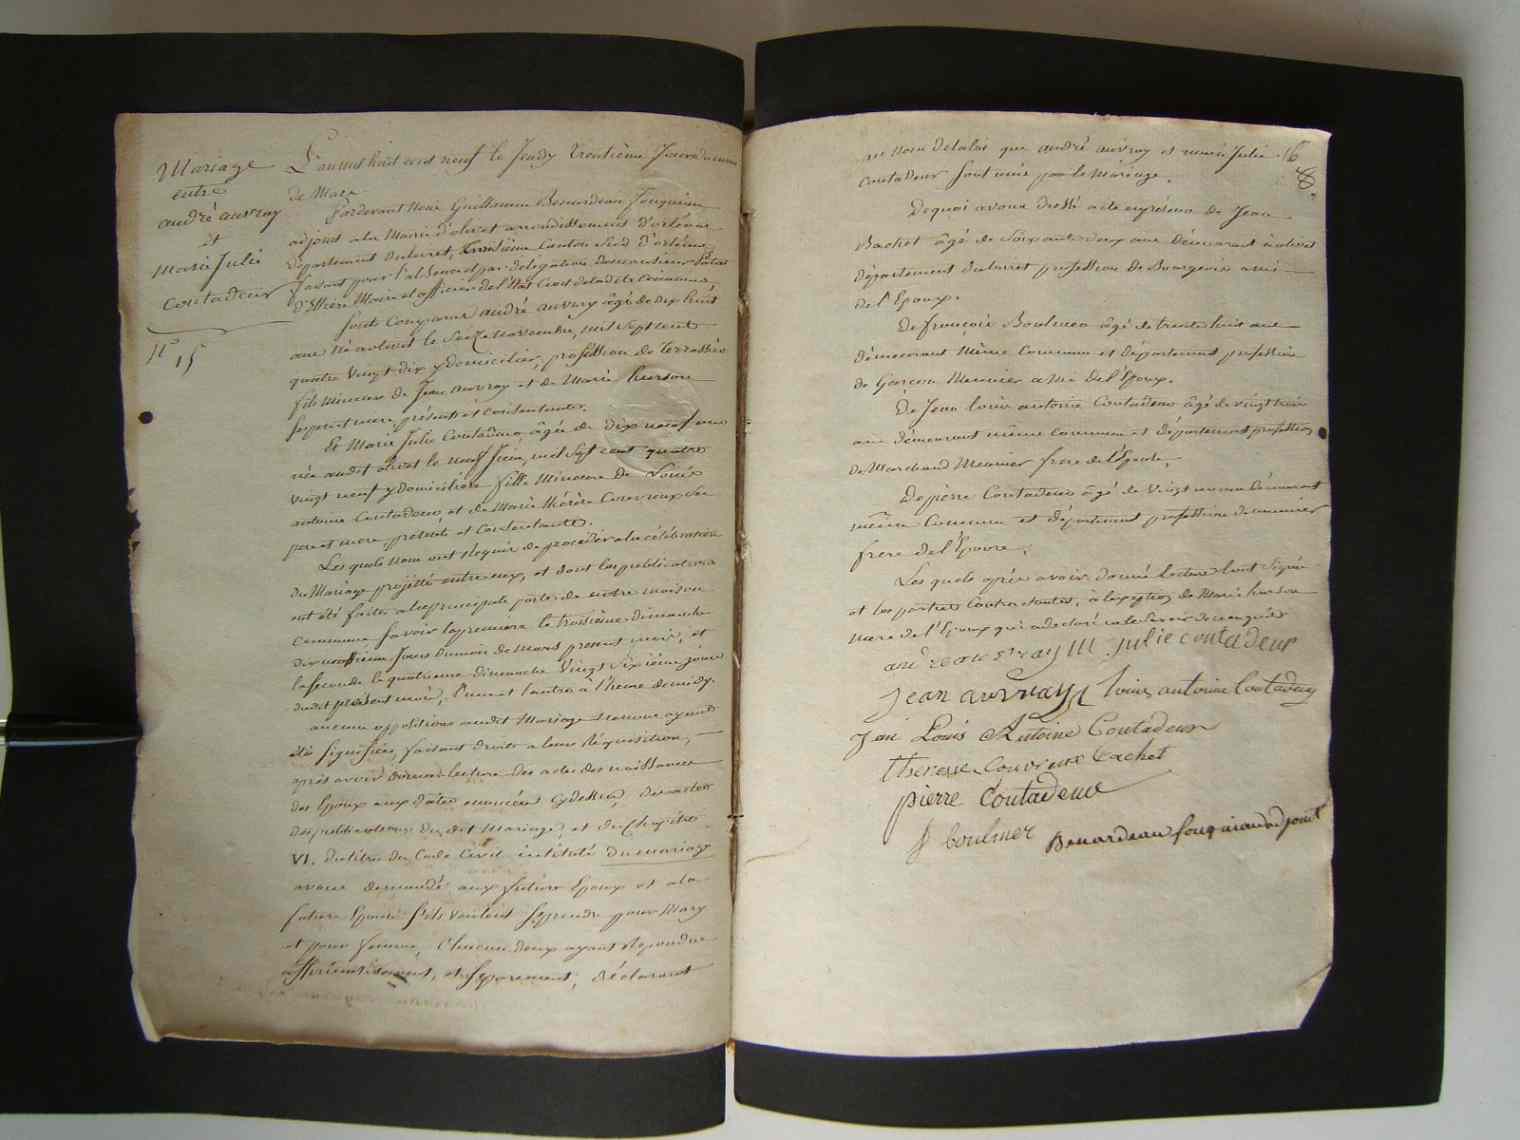 Mariage
entre
andré auvray
et
Marie Julie
Coutadeur
N° 15
L'an mil huit cent neuf le Jeudy trentième Jour du mois
de Mars
Pardevant Nous Guillaume Benardeau fouquiau
adjoint a la Mairie d'olivet arrondissement d'orléans
département du Loiret, Canton Sud d'orléans
faisant pour l'absence et par délégation de monsieur
Maire et officier de l'état Civil de ladite Commune,
sont Comparus andré auvray âgé de dix huit
ans né a olivet le Seize Novembre, mil Sept cent
quatre Vingt dix y domicilié, profession de terrassier
fils Mineur de Jean auvray et de Marie hurson
ses pere et mere, présents et consentants.
Et Marie Julie Coutadeur âgée de dix neuf ans
née audit olivet le neuf Juin, mil Sept cent quatre
vingt neuf y domiciliée fille Mineure de Louis
antoine Coutadeur, et de Marie thérèse Couvreux Ses
pere et mere présents et Consentants.
Les quels nous ont Requis de procéder a la célébration
du Mariage projetté entre eux, et dont les publications
ont été faites a la principale porte de notre maison
Commune Savoir la première le troisième dimanche
dix neuvième Jour du mois de Mars present mois, et
la seconde le quatrieme dimanche Vingt Sixième jour
dudit présent mois, l'une et l'autre à l'heure de midy.
aucune opposition audit Mariage Ne nous ayant
été Signifiée, faisant droit a leur Réquisition,
après avoir donné lecture des actes de naissances
des Epoux aux dates énoncées cy dessus, des actes
des publications du dit Mariage, et du Chapitre
VI. du titre du Code Civil intitulé du mariage
avons demandé aux futurs Epoux et a la
future Epouse s'ils veulent se prendre pour Mary
et pour femme, Chacun deux ayant Répondu
affirmativement, et séparement, déclarons
au Nom de la loi que andré auvray et marie Julie
Coutadeur sont unis par le Mariage.
16
8
De quoi avons dressé acte en présence de Jean
Bachet âgé de Soixante deux ans Démeurant à olivet
département du loiret profession de Bourgeois ami
de l'Epoux.
De françois Boulmer âgé de trente huit ans
démeurant Même Commune et département profession
de Garçon Meunier ami de l'Epoux.
De Jean louis antoine Coutadeur âgé de vingt trois
ans démeurant même Commune et département profession
de Marchand Meunier frere de l'Epouse,
De pierre Coutadeur âgé de Vingt un ans Démeurant
même Commune et département profession de meunier
frere de l'Epouse.
Les quels après avoir donné lecture l'ont Signé
et les parties Contractantes, à l'exception de Marie hurson
mere de l'Epoux qui a declaré ne le savoir de ce enquise
andre auvray M. julie coutadeur
jean auvray louis antoine Coutadeur
Jean Louis Antoine Coutadeur
therese Couvreux Bachet
pierre Coutadeur
f boulmer Benardeau fouquiau adjoint